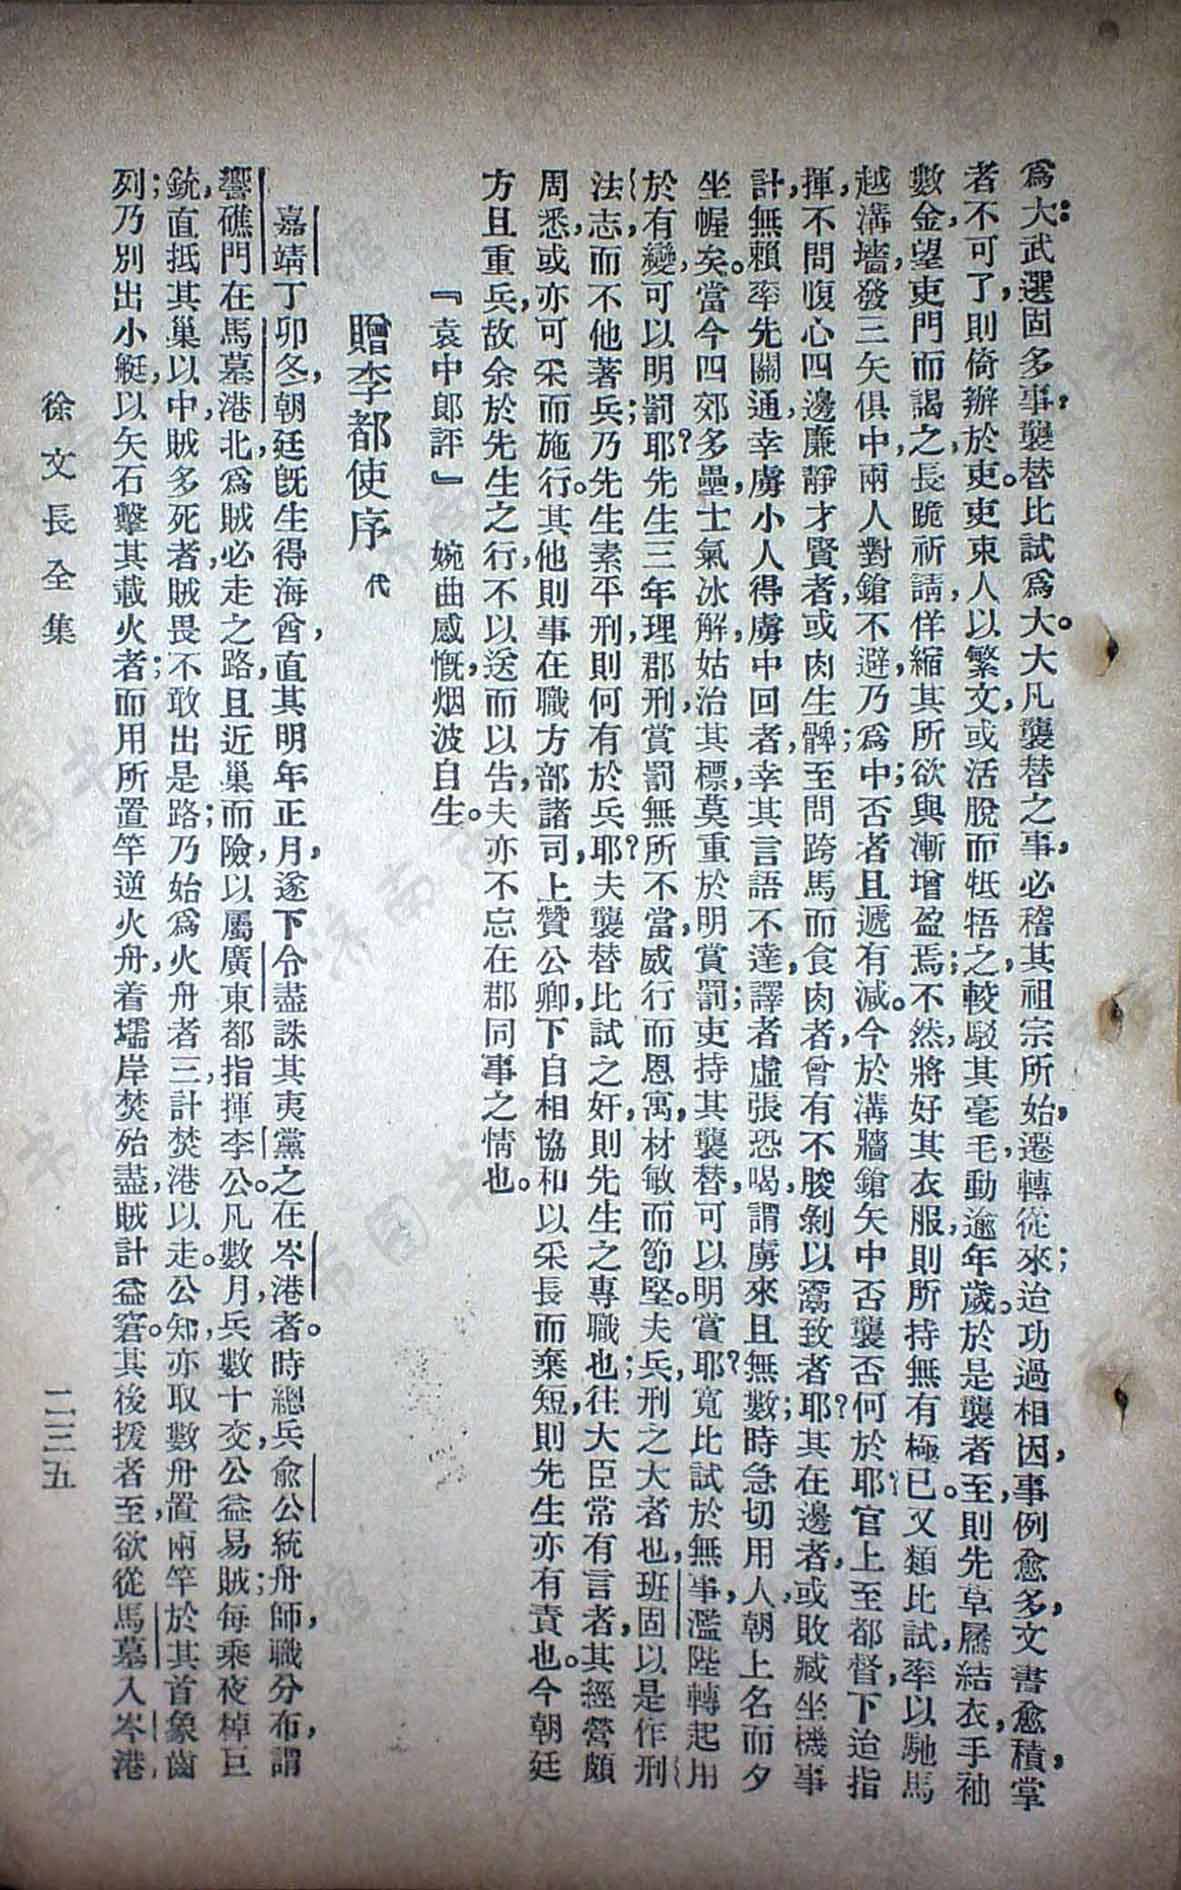 爲大武選固多事襲替比試爲大。大凡襲替之事,必稽其祖宗所始,遷轉從來;迨功過相因,事例愈多,文書愈積,掌
者不可了,則倚辦於吏。吏束人以繁文,或活脫而牴牾之,較駁其毫毛,動逾年歲。於是襲者至,則先草屩結衣,手袖
數金,望吏門而謁之,長跪祈請,佯縮其所欲,與漸增盈焉;不然,將好其衣服,則所持無有極已。又類比試,率以馳馬
越溝墻,發三矢俱中,兩人對鎗不避,乃爲中;否者且遞有減。今於溝牆鎗矢中否襲否何於耶?官上至都督,下迨指
揮,不問腹心四邊,廉靜才賢者,或肉生髀,至問跨馬而食肉者,曾有不朘剝以鬻致者耶;其在邊者,或敗臧坐機事
計,無賴率先關通,幸虜小人得虜中回者,幸其言語不達,譯者虛張恐喝,謂虜來且無數,時急切用人,朝上名而夕
坐幄矣。當今四郊多壘,士氣冰解,姑治其標,莫重於明賞罰;吏持其襲替,可以明賞耶?寬比試於無事,濫陞轉起用
於有變,可以明罰耶?先生三年理郡刑,賞罰無所不當,威行而恩寓,材敏而節堅。夫兵,刑之大者也,班固以是作刑
法志;而不他著兵;乃先生素平刑,則何有於兵耶?夫襲替比試之奸,則先生之專職也;往大臣常有言者,其經營頗
周悉,或亦可采而施行。其他則事在職方部諸司,上贊公卿,下自相協和,以采長而棄短,則先生亦有責也。今朝廷
方且重兵,故余於先生之行,不以送而以告,夫亦不忘在郡同事之情也。
『袁中郞評』 婉曲感慨,烟波自生。
贈李都使序 代
嘉靖丁卯冬,朝廷旣生得海酋直,其明年正月,遂下令盡誅其夷黨之在岑港者。時總兵俞公統舟師,職分布,謂
響礁門在馬墓港北,爲賊必走之路,且近巢而險,以屬廣東都指揮李公。凡數月,兵數十交,公益易賊;每乘夜棹巨
銃,直抵其巢,以中,賊多死者,賊畏,不敢出是路;乃始爲火舟者三,計焚港以走。公知,亦取數舟,置兩竿於其首象齒
列;乃別出小艇,以矢石擊其載火者;而用所置竿逆火舟,着壖岸焚殆盡,賊計益窘。其後援者至,欲從馬墓入岑港,
徐文長全集 二三五